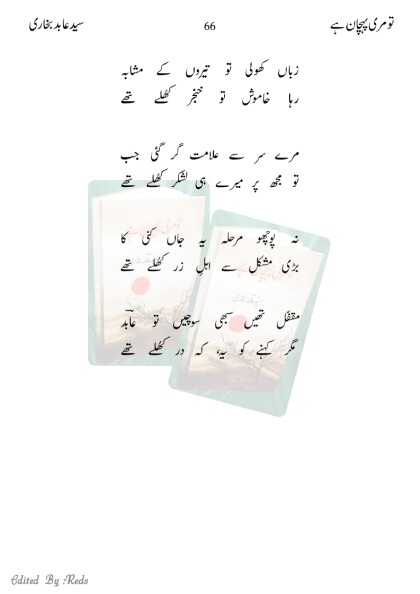 تو مری پہچان ہے 66 سید عابد بخاری
زباں کھولی تو تیروں کے مشابہ
رہا خاموش تو خنجر کھُلے تھے
مرے سر سے علامت گر گئی جب
تو مجھ پر میرے ہی لشکر کھُلے تھے
نہ پوچھو مرحلہ یہ جاں کنی کا
بڑی مشکل سے اہلِ زر کھُلے تھے
مقفّل تھیں سبھی سوچیں تو عابدؔ
مگر کہنے کو یہ، کہ در کھُلے تھے
Edited By Reds